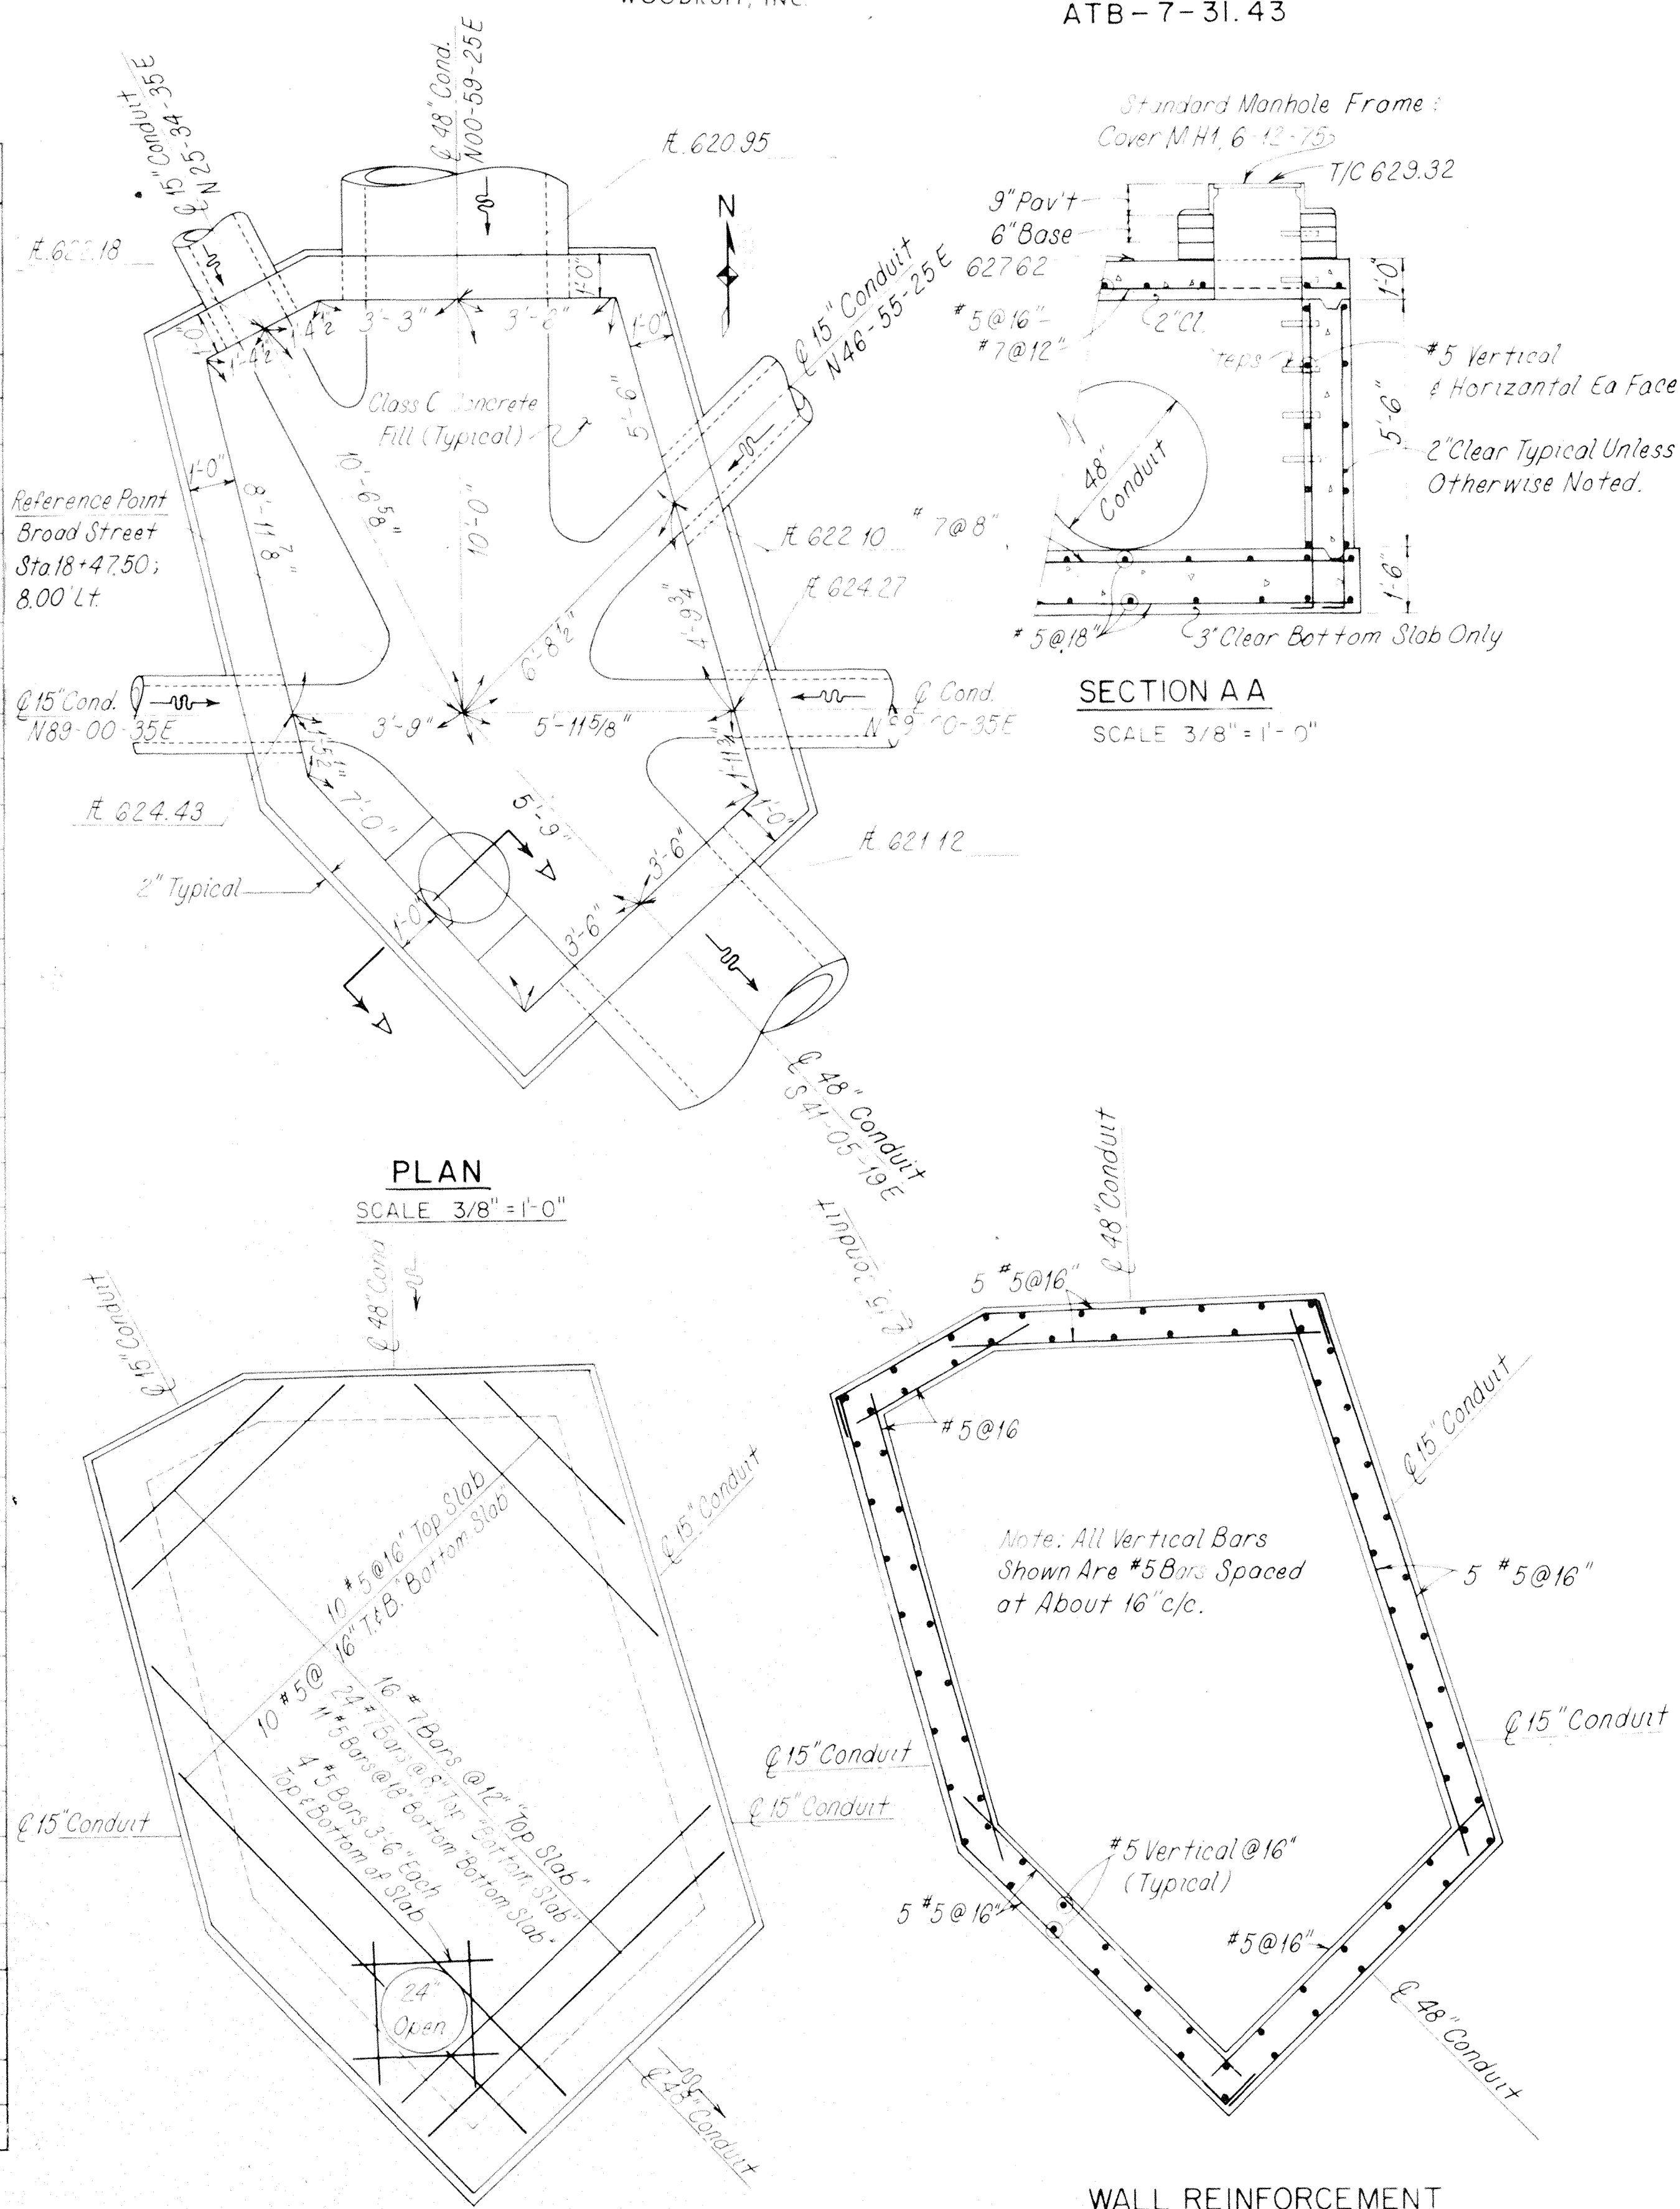 WOODRUFF, INC.
ATB-7-31.43
℄ 15" Conduit
N 25-34-35E
℄ 48" Cond.
N00-59-25E
℄ 620.95
N
℄ 15" Conduit
N46-55-25E
1'-0"
1'-0"
1'-4½
1'-4½
3'-3"
1'-0"
1'-0"
5'-6"
Class C Concrete
Fill (Typical)
1'-0"
8'-11⅞"
10'-6⅝"
10'-0"
Reference Point
Broad Street
Sta.18+47.50;
8.00' Lt.
℄ 622.10
℄ 624.27
4'-9¾"
6'-8½"
℄ 15" Cond.
N89-00-35E
3'-9"
5'-11 5/8"
℄ Cond.
7'-0"
5'-9"
1'-0"
℄ 624.43
℄ 621.12
2" Typical
A
A
1'-0"
3'-6"
3'-6"
℄ 48" Conduit
S 41-05-19E
PLAN
SCALE 3/8"=1'-0"
Standard Manhole Frame &
Cover MH1, 6-12-75
T/C 629.32
9" Pav't
6" Base
627.62
1'-0"
#5@16"
#7@12"
2"Cl.
Steps
#5 Vertical
& Horizontal Ea Face
5'-6"
2"Clear Typical Unless
Otherwise Noted.
48"
Conduit
#7@8"
1'-6"
#5@18"
3"Clear Bottom Slab Only
SECTION A A
SCALE 3/8"=1'-0"
℄ 15" Conduit
℄ 48" Cond
℄ 15" Conduit
10 #5@16" Top Slab
10 #5@ 16" T.&B. "Bottom Slab"
16 #7 Bars @12" "Top Slab"
24 #7 Bars @8" Top "Bottom Slab"
11 #5 Bars @18" Bottom "Bottom Slab"
4 #5 Bars 3'-6" Each
Top & Bottom of Slab
℄ 15" Conduit
℄ 15" Conduit
24"
Open
℄ 48" Conduit
℄ 15" Conduit
℄ 48" Conduit
5 #5@16"
#5@16
℄ 15" Conduit
Note: All Vertical Bars
Shown Are #5 Bars Spaced
at About 16" c/c.
5 #5@16"
℄ 15" Conduit
℄ 15" Conduit
#5 Vertical @16"
(Typical)
5 #5@16"
#5@16"
℄ 48" Conduit
WALL REINFORCEMENT